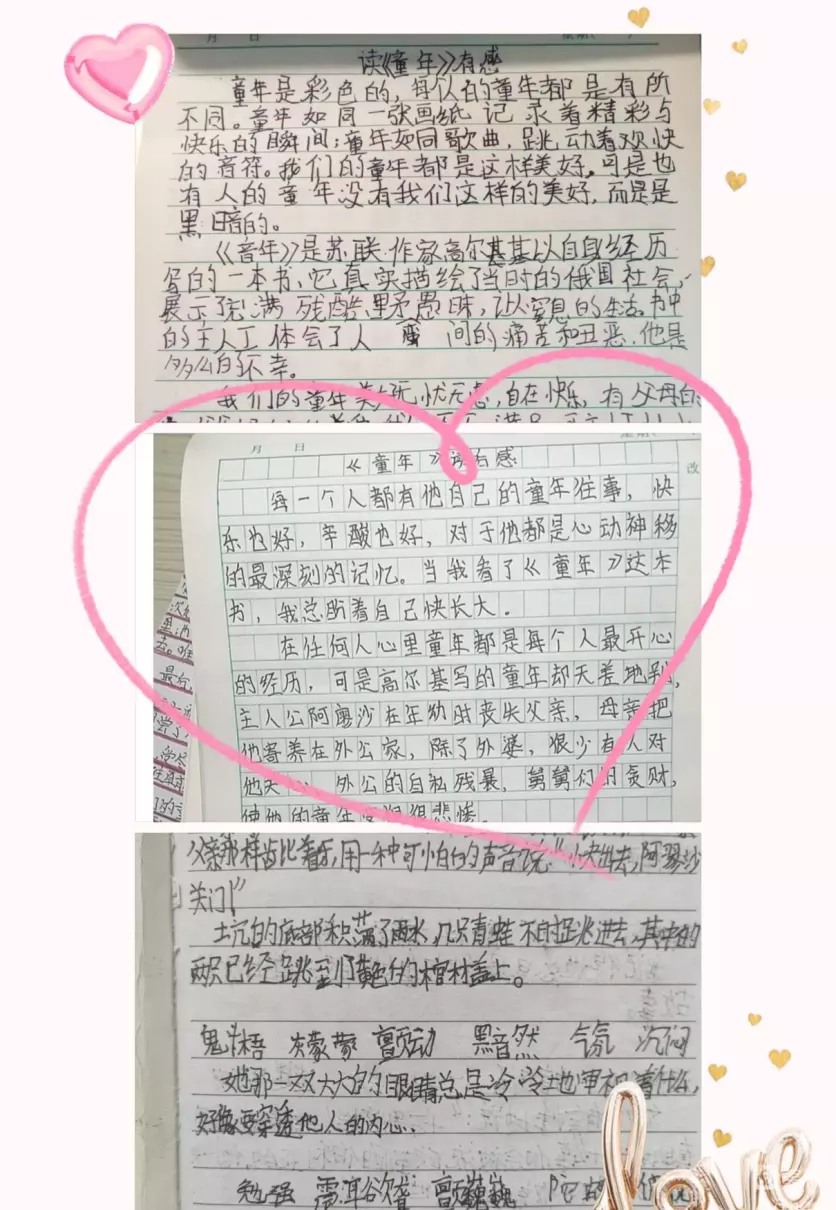 月 日
读《童年》有感
童年是彩色的,每个人的童年都是有所
不同。童年如同一张画纸记录着精彩与
快乐的瞬间;童年如同歌曲,跳动着欢快
的音符。我们的童年都是这样美好。可是也
有人的童年没有我们这样的美好,而是是
黑暗的。
《童年》是苏联作家高尔基基以自身经历
写的一本书,它真实描绘了当时的俄国社会,
展示了充满残酷野愚昧,让人窒息的生活。书中
的主人工体会了人间的痛苦和丑恶,他是
多么的不幸。
我们的童年美好无忧无虑,自在快乐,有父母的
月 日
《童年》读后感
每一个人都有他自己的童年往事,快
乐也好,辛酸也好,对于他都是心动神移
的最深刻的记忆。当我看了《童年》这本
书,我总盼着自己快长大。
在任何人心里童年都是每个人最开心
的经历,可是高尔基写的童年却天差地别,
主人公阿廖沙在年幼时丧失父亲,母亲把
他寄养在外公家,除了外婆,狠少有人对
他关心,外公的自私残暴,舅舅们的贪财,
使他的童年变得很悲惨。
父亲那样齿比着牙,用一种可怕的声音说:“快出去,阿廖沙
关门!”
土坑的底部积满了雨水,几只青蛙不时跳进去,其中的
两只已经跳到了黄色的棺材盖上。
魁梧 灰蒙蒙 颤动 黯然 气氛 沉闷
她那一双大大的眼睛总是冷冷地审视着什么,
好像要穿透他人的内心.
勉强 震耳欲聋 颤巍巍
love